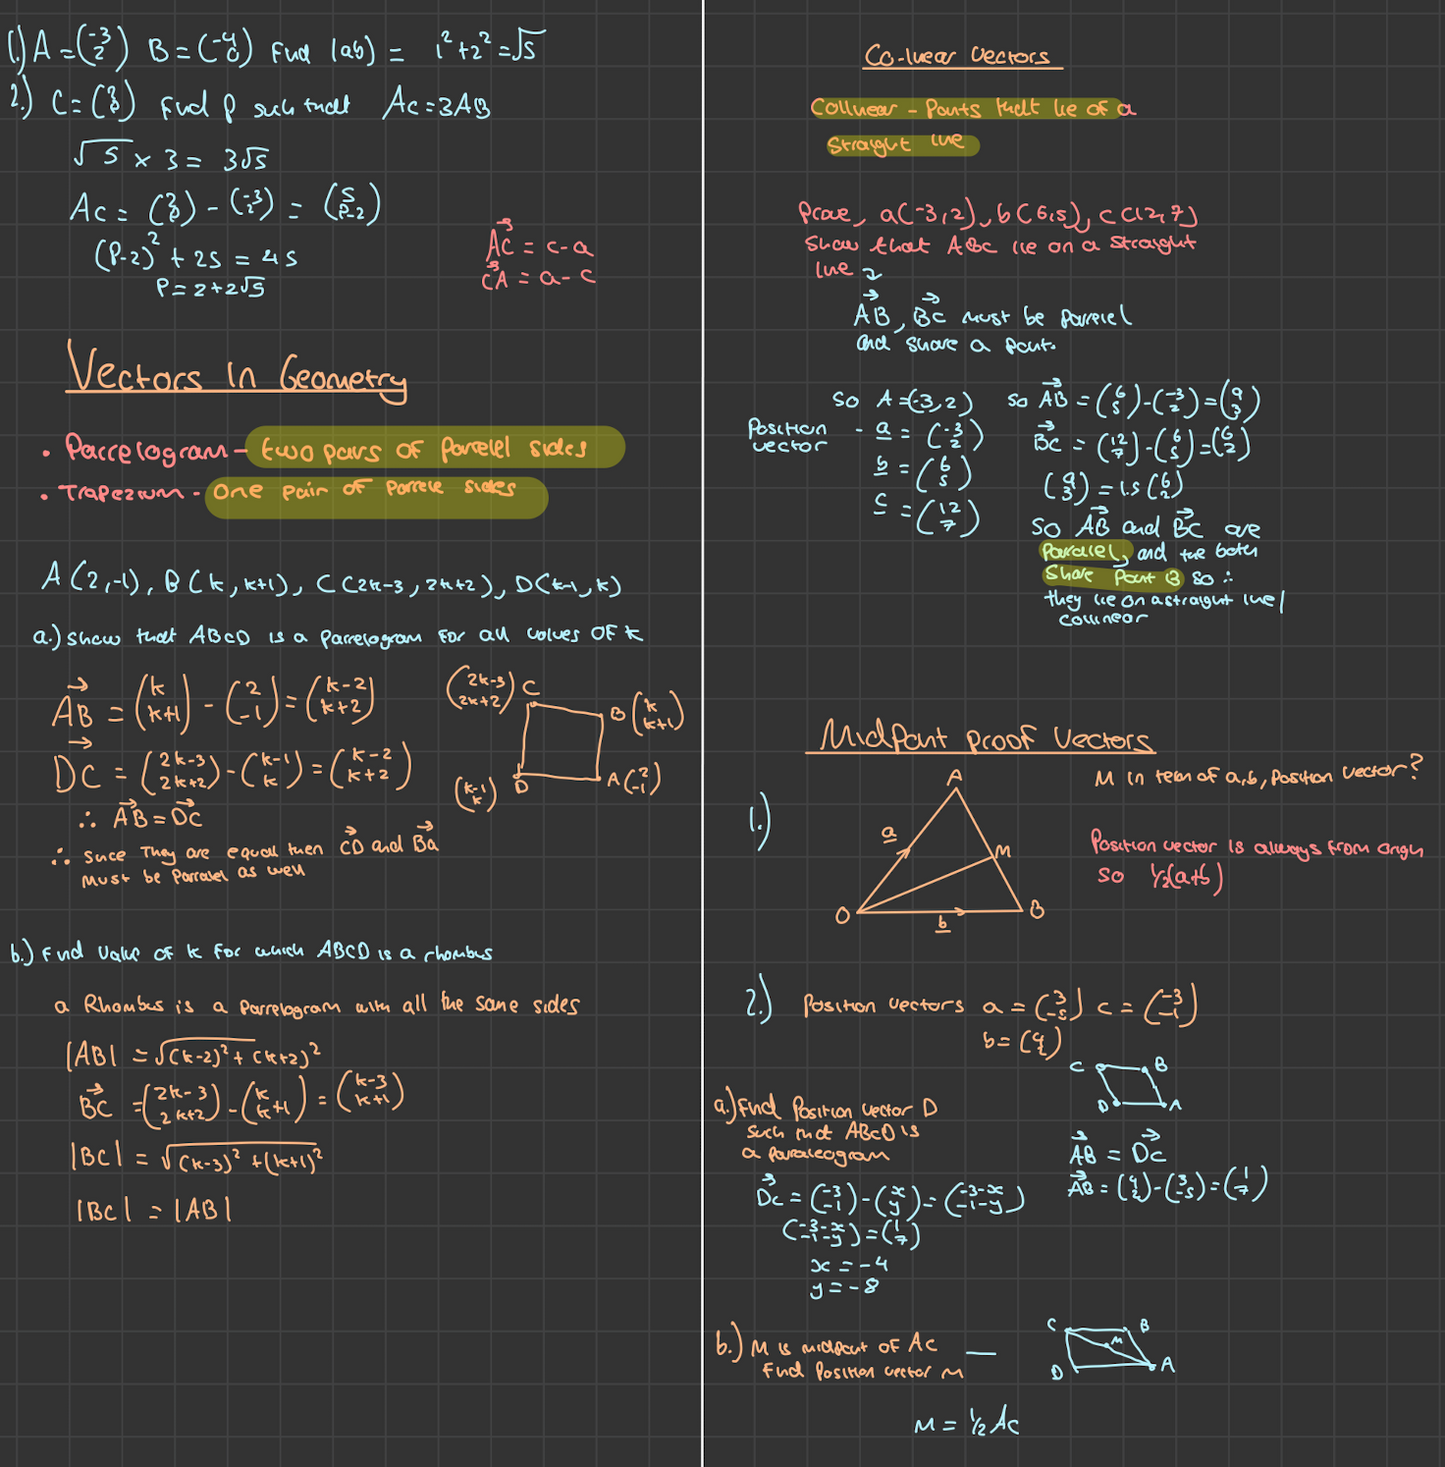 1.) A = (-3 2) B = (-4 0) Find |ab| = 1² + 2² = √5
2.) C = (2 P) Find P such that AC = 3AB
√5 × 3 = 3√5
AC = (2 P) - (-3 2) = (5 P-2)
(P-2)² + 25 = 45
P = 2 + 2√5
AC = c - a
CA = a - c
Vectors In Geometry
• Parrelogram - two pairs of parrelel sides
• Trapezium - One pair of parrele sides
A(2,-1), B(k, k+1), C(2k-3, 2k+2), D(k-1, k)
a.) show that ABCD is a Parrelogram for all values of k
AB = (k k+1) - (2 -1) = (k-2 k+2)
DC = (2k-3 2k+2) - (k-1 k) = (k-2 k+2)
∴ AB = DC
∴ since They are equal then CD and Ba
Must be Parralel as well
(2k-3 2k+2) C
B (k k+1)
(k-1 k) D
A (2 -1)
b.) Find value of k for which ABCD is a rhombus
a Rhombus is a parrelogram with all the same sides
|AB| = √(k-2)² + (k+2)²
BC = (2k-3 2k+2) - (k k+1) = (k-3 k+1)
|BC| = √(k-3)² + (k+1)²
|BC| = |AB|
Co-linear Vectors
Collinear - Points that lie of a
Straight line
Prove, a(-3,2), b(6,5), c(12,7)
Show that ABC lie on a straight
line
AB, BC must be parrelel
and share a point.
So A = (-3, 2)
Position vector - a = (-3 2)
b = (6 5)
c = (12 7)
so AB = (6 5) - (-3 2) = (9 3)
BC = (12 7) - (6 5) = (6 2)
(9 3) = 1.5 (6 2)
So AB and BC are
Parallel, and the both
Share Point B so ∴
they lie on a straight line/
collinear
Midpoint proof Vectors
M in term of a,b, Position vector?
1.)
A
a
M
O
b
B
Position vector is always from origin
so ½(a+b)
2.) Position vectors a = (3 -5) c = (-3 -1)
b = (4 2)
C B
D A
a.) Find Position vector D
such that ABCD is
a paraleogram
AB = DC
AB = (4 2) - (3 -5) = (1 7)
DC = (-3 -1) - (x y) = (-3-x -1-y)
(-3-x -1-y) = (1 7)
x = -4
y = -8
b.) M is midpoint of AC
Find Position vector M
C B
M
D A
M = ½ AC